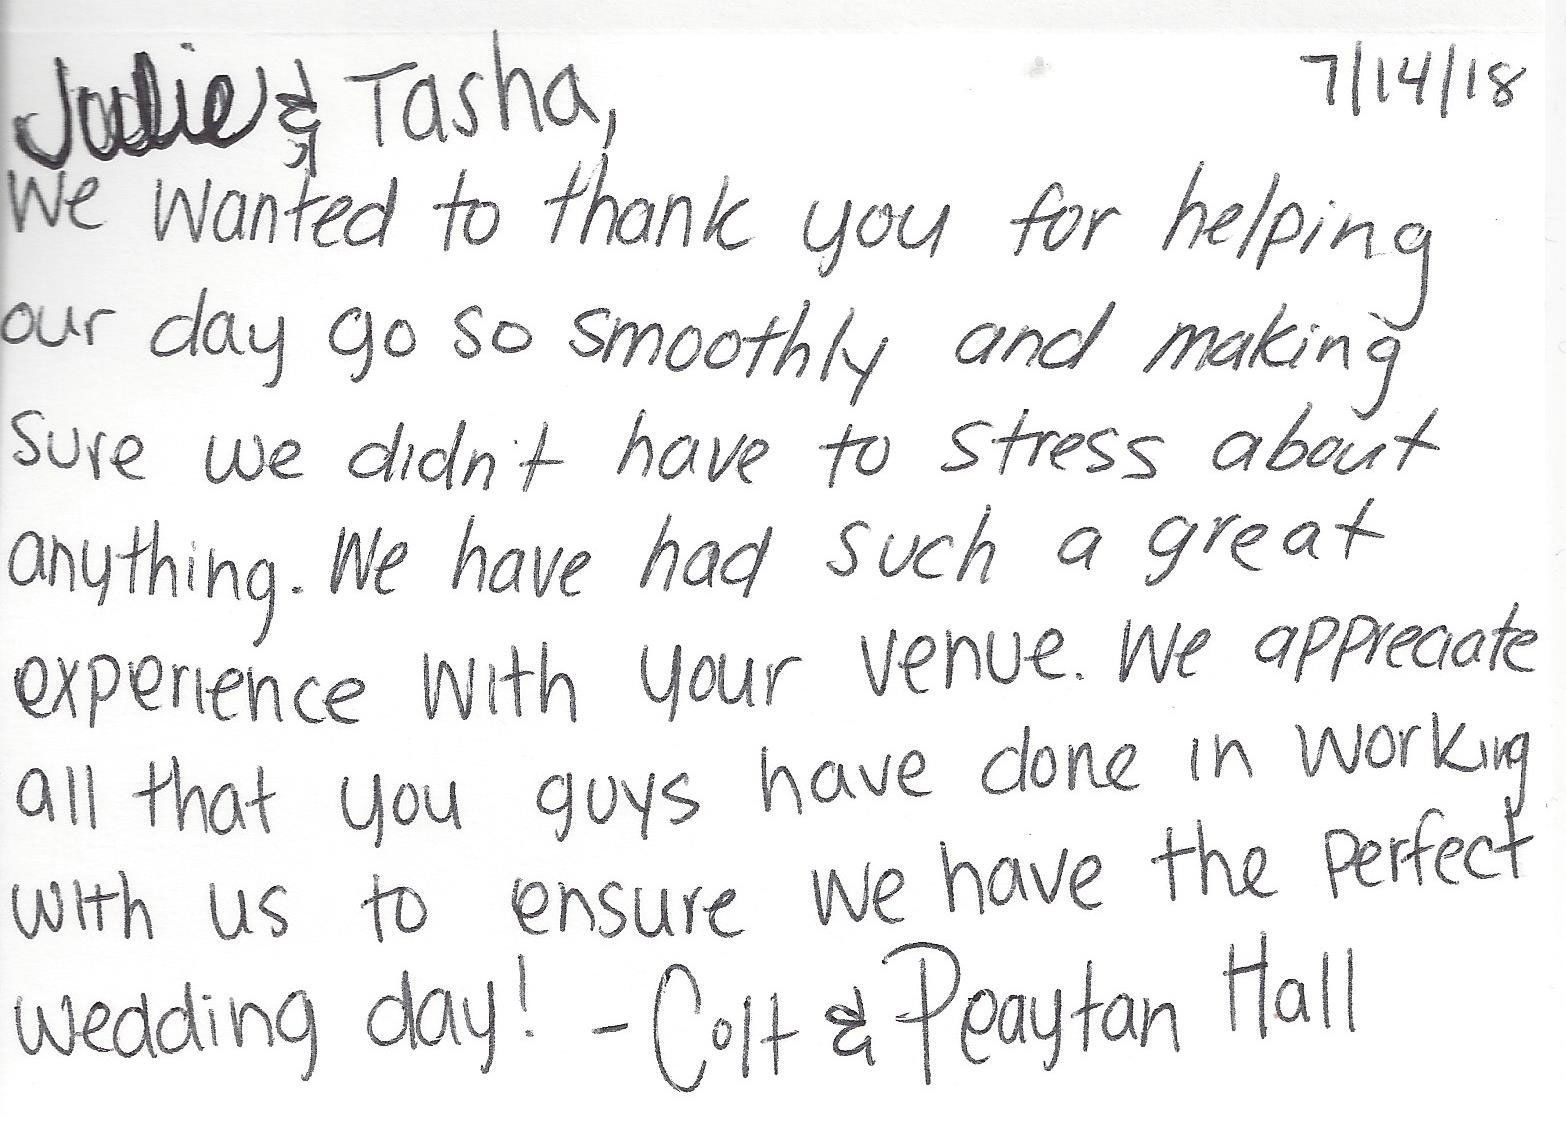 Jodie & Tasha, 7/14/18
We wanted to thank you for helping
our day go so smoothly and making
sure we didn't have to stress about
anything. We have had such a great
experience with your venue. We appreciate
all that you guys have done in working
with us to ensure we have the perfect
wedding day! - Colt & Peaytan Hall